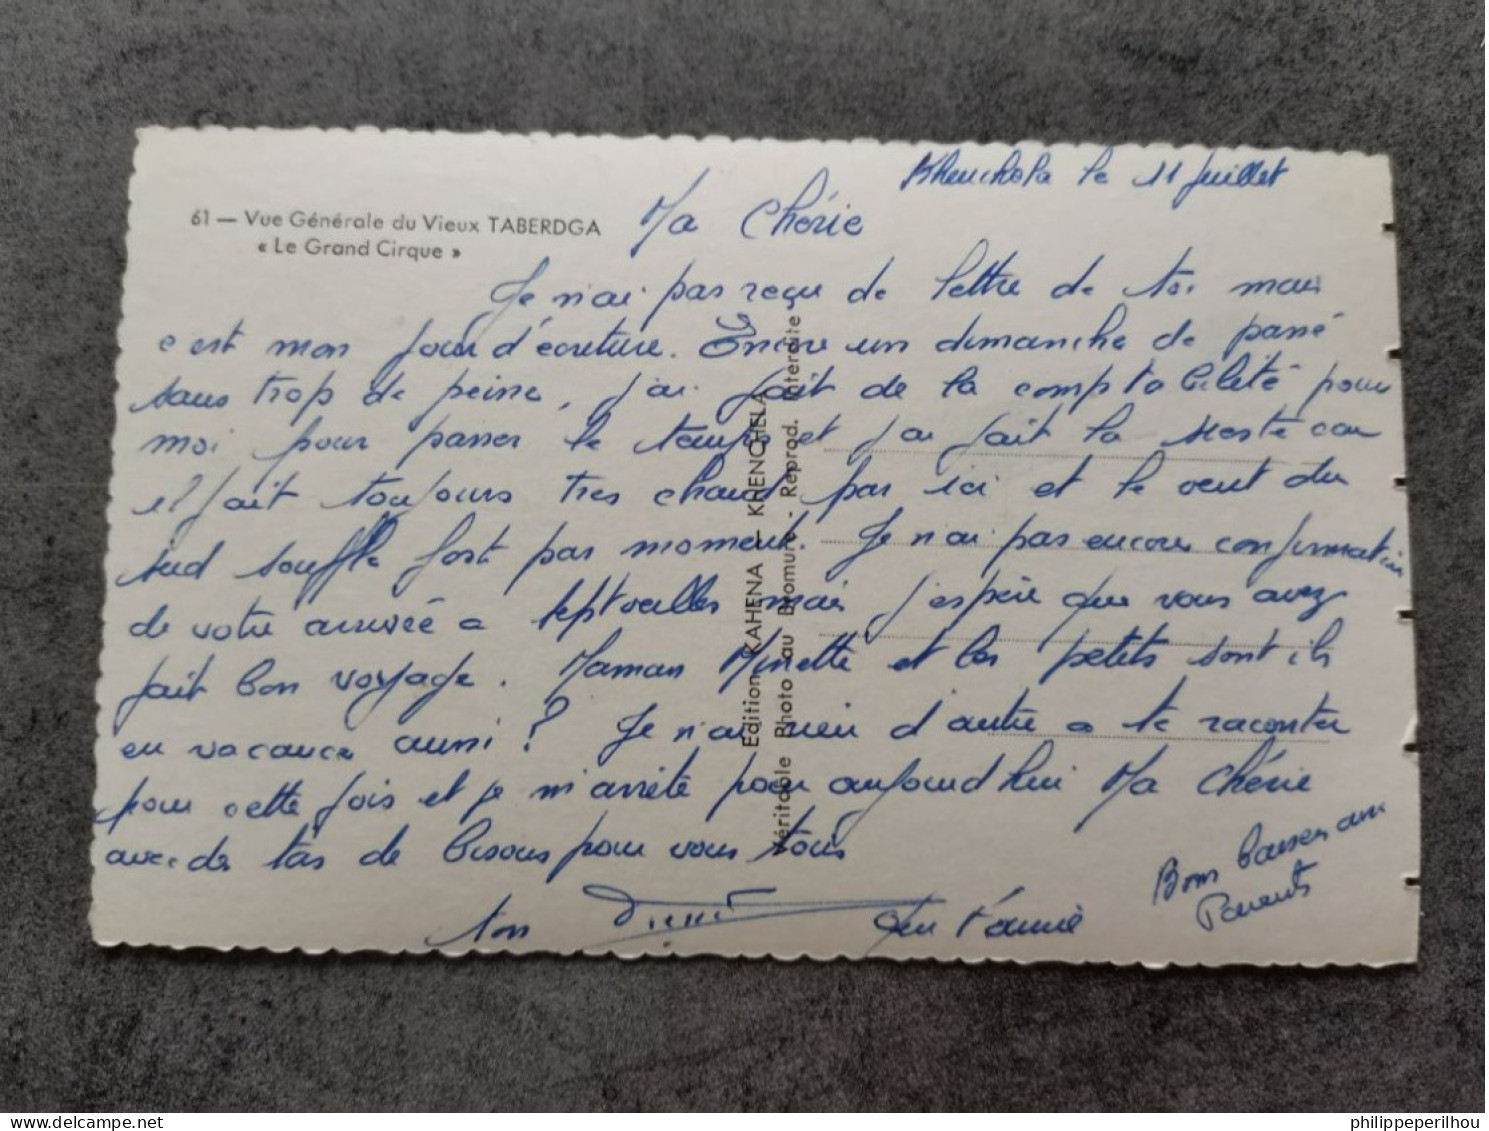 Khenchela le 11 Juillet
61 — Vue Générale du Vieux TABERDGA
« Le Grand Cirque »
Ma Chérie
Je n'ai pas reçu de lettre de toi mais
c'est mon jour d'écriture. Encore un dimanche de passé
sans trop de peine, j'ai fait de la comptabilité pour
moi pour passer le temps et j'ai fait la sieste car
il fait toujours très chaud par ici et le vent du
sud souffle fort par moment. Je n'ai pas encore confirmation
de votre arrivée a mais j'espère que vous avez
fait bon voyage. Maman Minette et les petits sont ils
en vacances aussi ? Je n'ai rien d'autre a te raconter
pour cette fois et je m'arrête pour aujourd'hui Ma Chérie
avec des tas de bisous pour vous tous
ton
qui t'aime
Bons baisers aux
Parents
Edition KAHENA - KHENCHELA
Véritable Photo au Bromure - Reprod. Interdite
delcampe.net
philippeperilhou